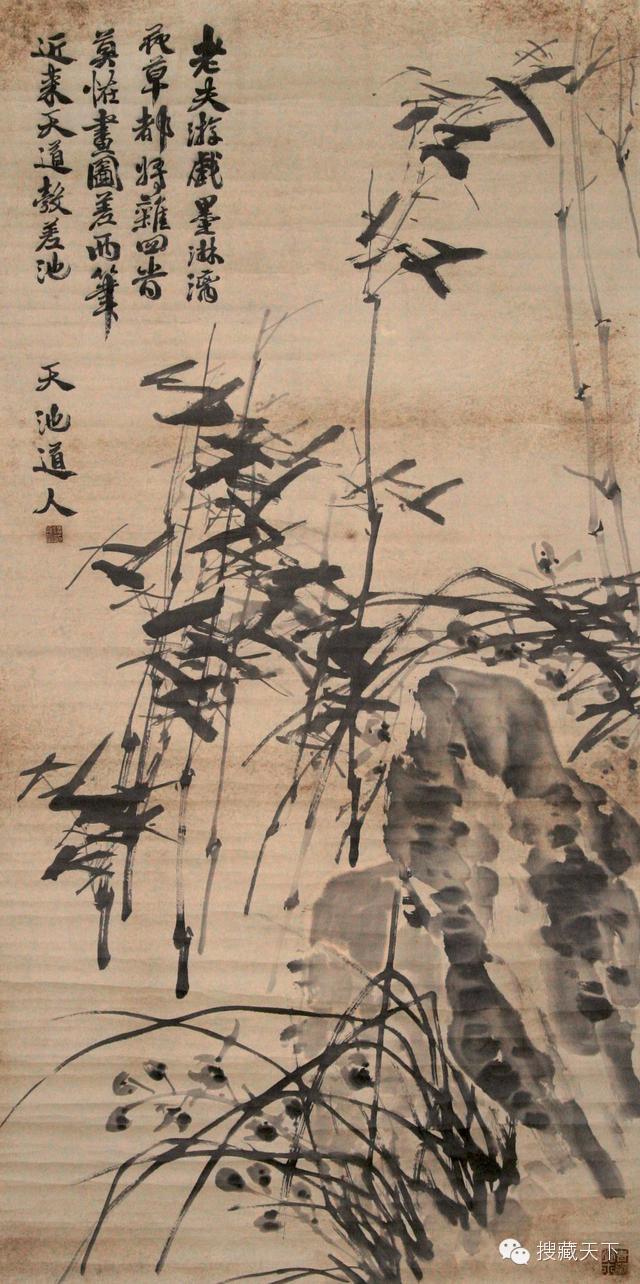 老夫游戲墨淋漓
花草都将雜四旹
莫恠畫圖差兩筆
近来天道彀差池
天池道人
搜藏天下